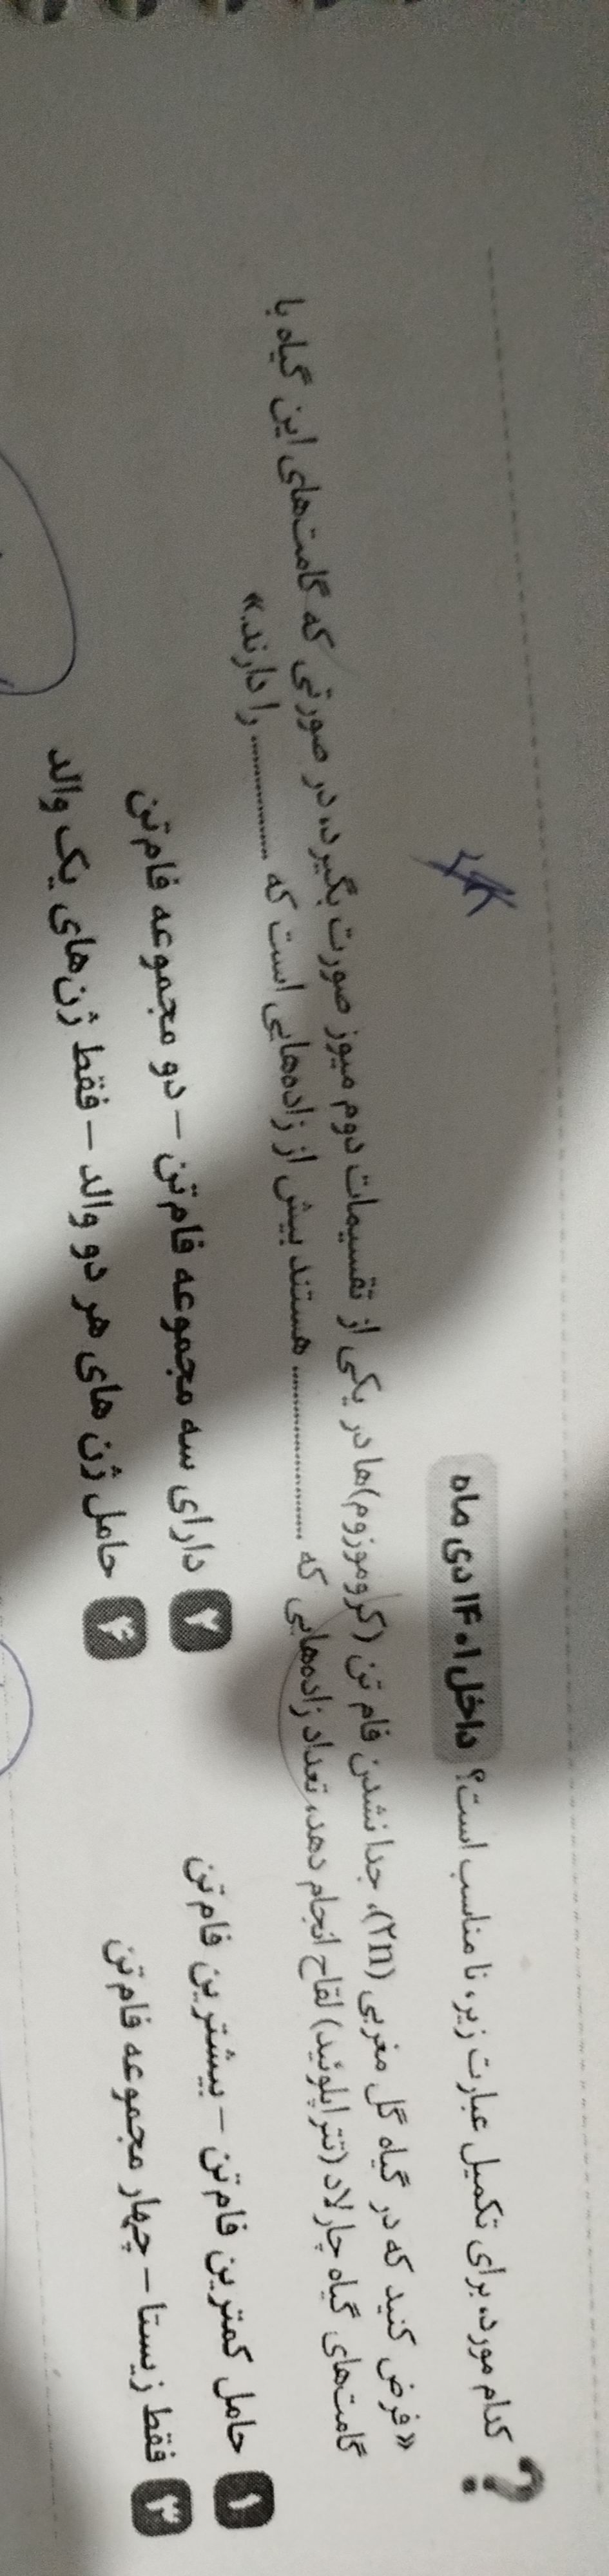 کدام مورد، برای تکمیل عبارت زیر، نا مناسب است؟ داخل ۱۴۰۱ دی ماه
«فرض کنید که در گیاه گل مغربی (۲n)، جدا نشدن فام تن (کروموزوم)ها در یکی از تقسیمات دوم میوز صورت بگیرد، در صورتی که گامت‌های این گیاه با
گامت‌های گیاه چارلاد (تتراپلوئید) لقاح انجام دهد، تعداد زاده‌هایی که .................... هستند بیش از زاده‌هایی است که .................... را دارند.»
۱ حامل کمترین فام تن – بیشترین فام تن
۲ دارای سه مجموعه فام تن – دو مجموعه فام تن
۳ فقط زیستا – چهار مجموعه فام تن
۴ حامل ژن های هر دو والد – فقط ژن‌های یک والد